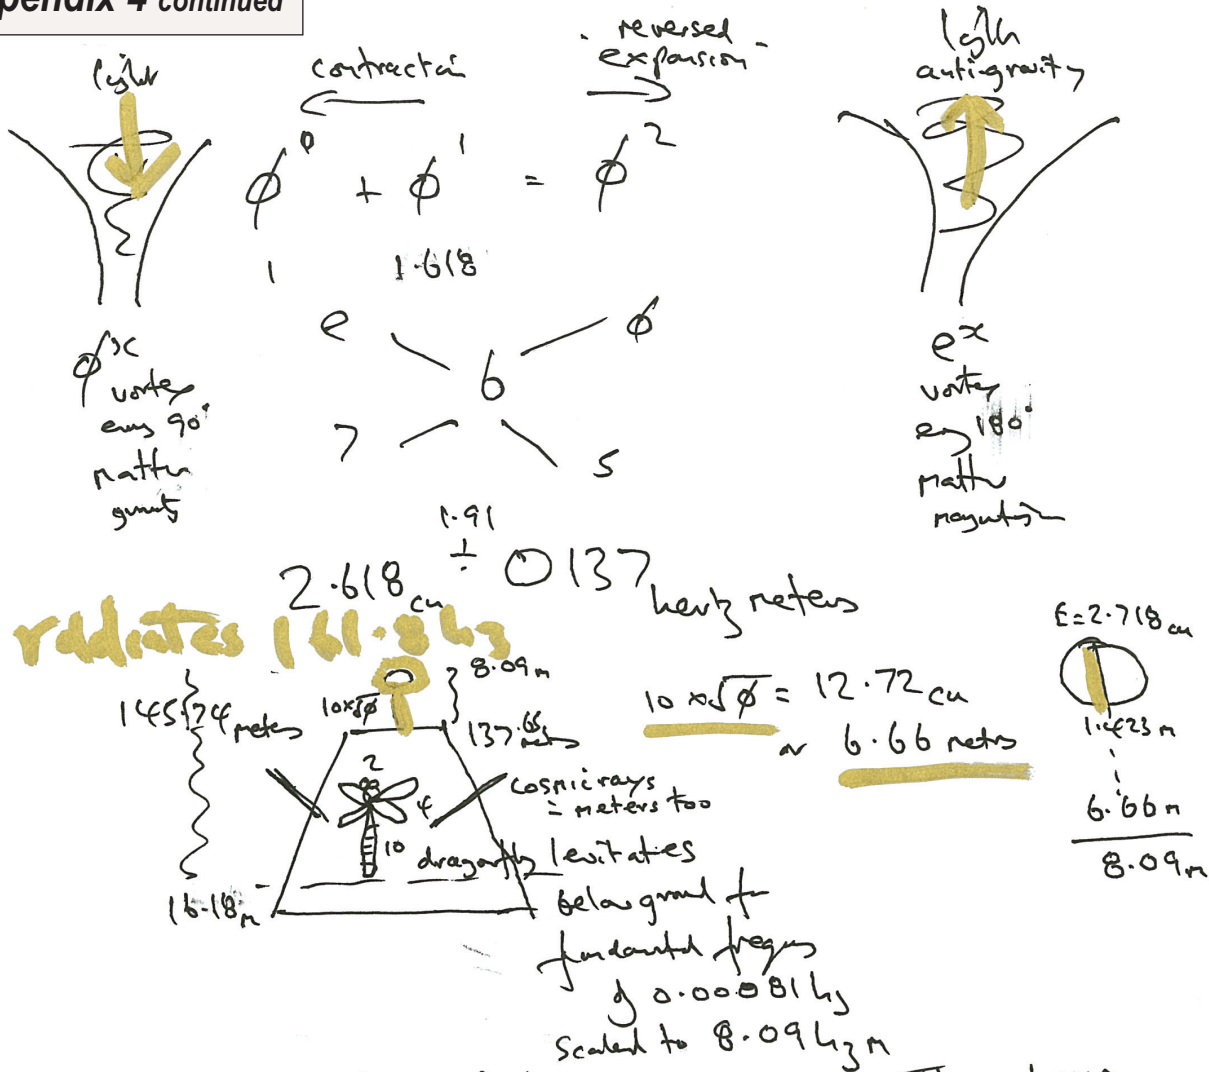 pendix 4 continued
light
contraction
- reversed -
expansion
light
antigravity
ϕ⁰ + ϕ¹ = ϕ²
1 1.618
e ϕ
6
7 5
ϕˣ
vortex
every 90°
matter
gravity
eˣ
vortex
every 180°
matter
magnetism
1.91
2.618 cu ÷ 0137 hertz meters
radiates 161.8 hz
E=2.718 cu
8.09m
145.74 meters
10x√ϕ
137.65 meters
10 x√ϕ = 12.72 cu
or 6.66 meters
1.423 m
6.66m
8.09m
2
4
10
cosmic rays
= meters too
dragonfly levitates
16.18 m
below ground for
fundamental freqns
of 0.00081 hz
scaled to 8.09 hz m